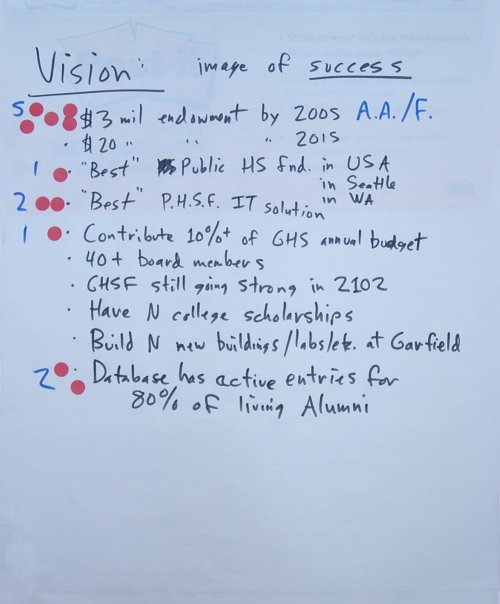 Vision: image of success
5 $3 mil endowment by 2005 A.A./F.
· $20 " " " 2015
1 · "Best" Public HS fnd. in USA
in Seattle
2 · "Best" P.H.S.F. IT solution in WA
1 · Contribute 10%+ of GHS annual budget
· 40+ board members
· GHSF still going strong in 2102
· Have N college scholarships
· Build N new buildings/labs/etc. at Garfield
2 · Database has active entries for
80% of living Alumni